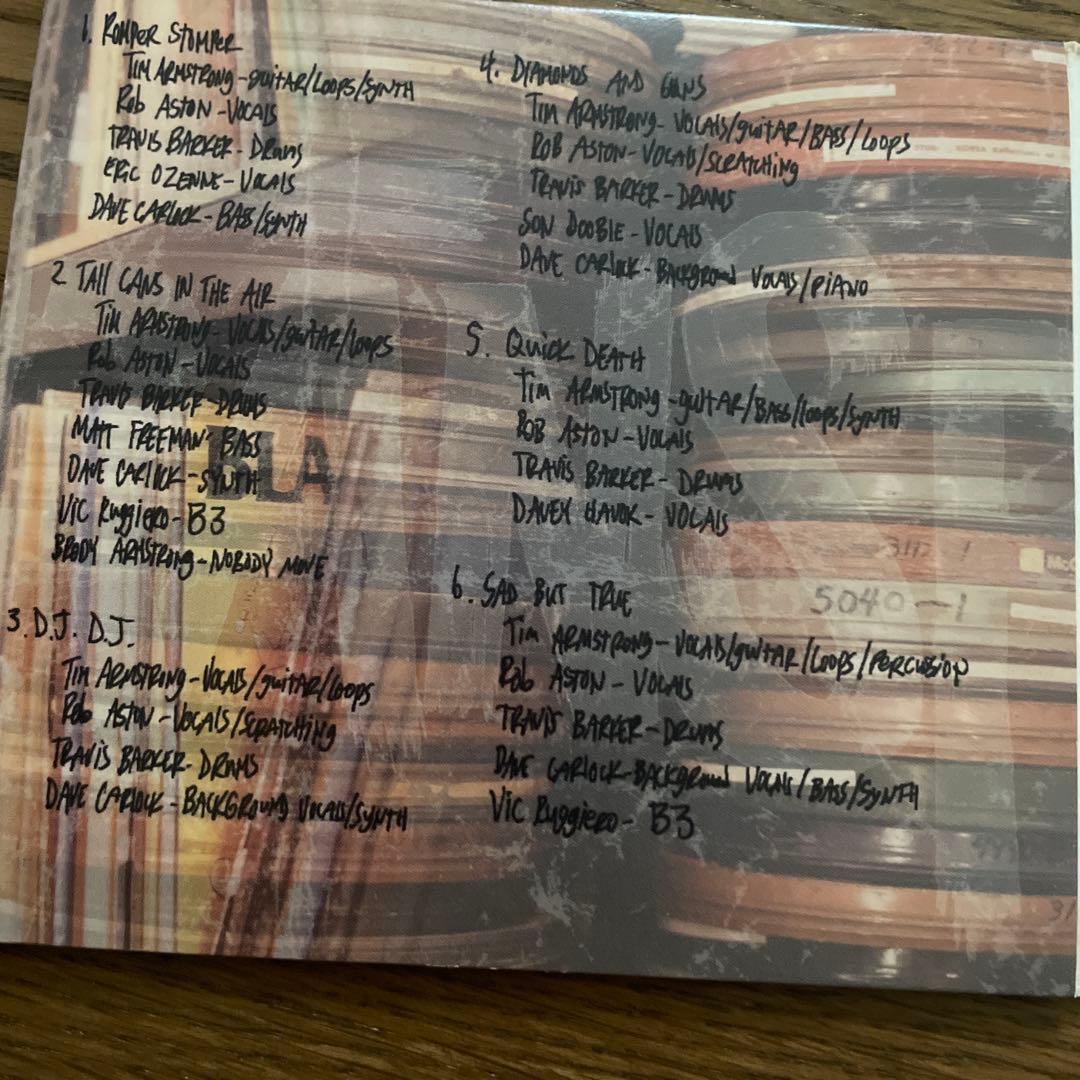 1. ROMPER STOMPER
TIM ARMSTRONG - guitar/LOOPS/SYNTH
ROB ASTON - VOCALS
TRAVIS BARKER - DRUMS
ERIC OZENNE - VOCALS
DAVE CARLOCK - BASS/SYNTH
2 TALL CANS IN THE AIR
TIM ARMSTRONG - VOCALS/guitar/Loops
Rob ASTON - VOCALS
TRAVIS BARKER - DRUMS
MATT FREEMAN - BASS
DAVE CARLOCK - SYNTH
Vic Ruggiero - B3
BRODY ARMSTRONG - NOBODY MOVE
3. D.J. D.J.
TIM ARMSTRONG - VOCALS/guitar/Loops
Rob ASTON - VOCALS/SCRATCHING
TRAVIS BARKER - DRUMS
DAVE CARLOCK - BACKGROUND VOCALS/SYNTH
4. DIAMONDS AND GUNS
TIM ARMSTRONG - VOCALS/guitar/BASS/Loops
ROB ASTON - VOCALS/SCRATCHING
TRAVIS BARKER - DRUMS
SON DOOBIE - VOCALS
DAVE CARLOCK - BACKGROUND VOCALS/PIANO
5. QUICK DEATH
TIM ARMSTRONG - guitar/BASS/loops/SYNTH
ROB ASTON - VOCALS
TRAVIS BARKER - DRUMS
DAVEY HAVOK - VOCALS
6. SAD BUT TRUE
TIM ARMSTRONG - VOCALS/guitar/Loops/PERCUSSION
Rob ASTON - VOCALS
TRAVIS BARKER - DRUMS
DAVE CARLOCK - BACKGROUND VOCALS/BASS/SYNTH
Vic Ruggiero - B3
BLA
3117 1
5040-1